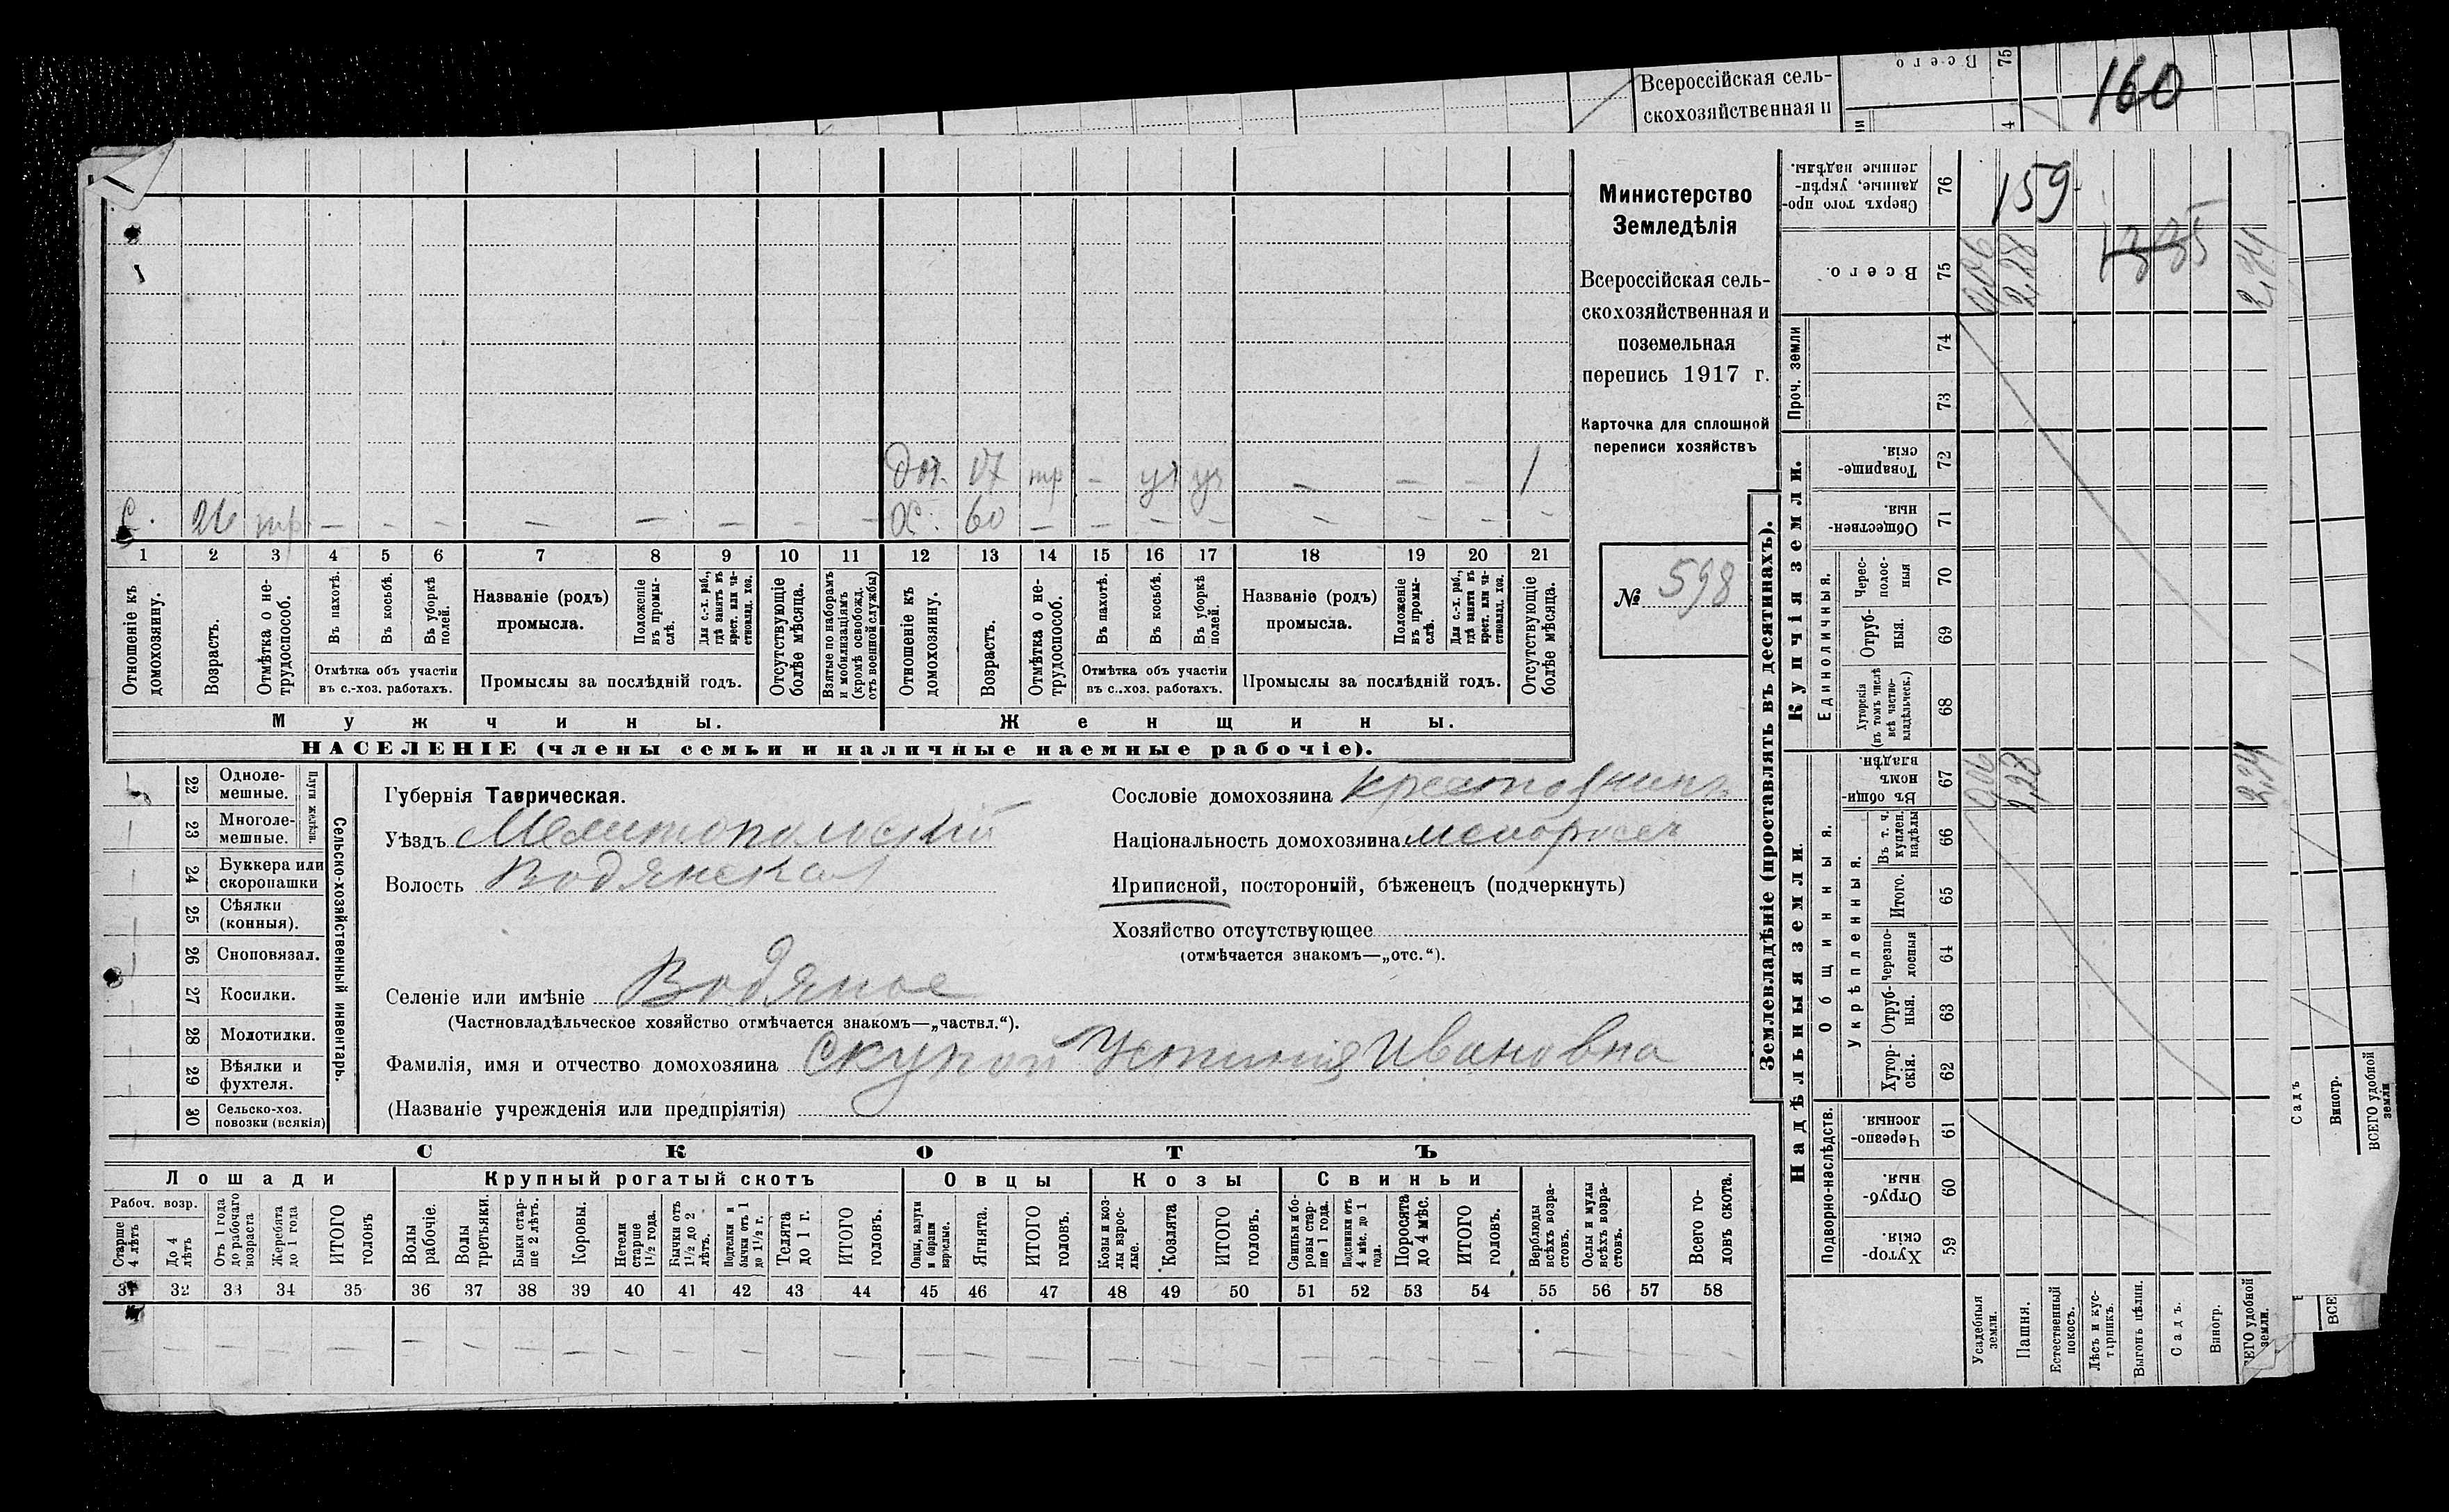 Всероссійская сель-
скохозяйственная и
Всего
75
160
159
1335
Министерство
Земледѣлія
Всероссійская сель-
скохозяйственная и
поземельная
перепись 1917 г.
Карточка для сплошной
переписи хозяйствъ
№ 598
Дч. 17 тр – уч уч – – – 1
С. 26 тр. – – – – – – – – Х. 60 – – – – – – – –
1 2 3 4 5 6 7 8 9 10 11 12 13 14 15 16 17 18 19 20 21
Отношеніе къ домохозяину.
Возрастъ.
Отмѣтка о не-трудоспособ.
Въ пахотѣ.
Въ косьбѣ.
Въ уборкѣ полей.
Отмѣтка объ участіи
въ с.-хоз. работахъ.
Названіе (родъ)
промысла.
Положеніе въ промы-слѣ.
Для с.-х. раб., гдѣ занятъ въ крест. или ча-стновлад. хоз.
Промыслы за послѣдній годъ.
Отсутствующіе болѣе мѣсяца.
Взятые по наборамъ и мобилизаціямъ (кромѣ освобожд. отъ военной службы)
Отношеніе къ домохозяину.
Возрастъ.
Отмѣтка о не-трудоспособ.
Въ пахотѣ.
Въ косьбѣ.
Въ уборкѣ полей.
Отмѣтка объ участіи
въ с..хоз. работахъ.
Названіе (родъ)
промысла.
Положеніе въ промы-слѣ.
Для с.-х. раб., гдѣ занята въ крест. или ча-стновлад. хоз.
Промыслы за послѣдній годъ.
Отсутствующіе болѣе мѣсяца.
Мужчины.
Женщины.
НАСЕЛЕНІЕ (члены семьи и наличные наемные рабочіе).
22 Одноле-мешные.
23 Многоле-мешные.
Плуги желѣзн.
24 Буккера или скоропашки
25 Сѣялки (конныя).
26 Сноповязал.
27 Косилки.
28 Молотилки.
29 Вѣялки и фухтеля.
30 Сельско-хоз. повозки (всякія)
Сельско-хозяйственный инвентарь.
Губернія Таврическая.
Уѣздъ Мелитопольскій
Волость Водянская
Сословіе домохозяина крестьянинъ
Національность домохозяина малоросъ
Приписной, посторонній, бѣженецъ (подчеркнуть)
Хозяйство отсутствующее
(отмѣчается знакомъ—„отс.“).
Селеніе или имѣніе Водяное
(Частновладѣльческое хозяйство отмѣчается знакомъ—„частвл.“).
Фамилія, имя и отчество домохозяина Скупой Устинія Ивановна
(Названіе учрежденія или предпріятія)
СКОТЪ
Лошади
Крупный рогатый скотъ
Овцы
Козы
Свиньи
Рабоч. возр.
Старше 4 лѣтъ
До 4 лѣтъ
Отъ 1 года до рабочаго возраста
Жеребята до 1 года
ИТОГО головъ
Волы рабочіе.
Волы третьяки.
Быки стар-ше 2 лѣтъ.
Коровы.
Нетели старше 1½ года.
Бычки отъ 1½ до 2 лѣтъ.
Подтелки и бычки отъ 1 до 1½ г.
Телята до 1 г.
ИТОГО головъ.
Овцы, валухи и бараны взрослые.
Ягнята.
ИТОГО головъ.
Козы и коз-лы взрос-лые.
Козлята
ИТОГО головъ.
Свиньи и бо-ровы стар-ше 1 года.
Подсвинки отъ 4 мѣс. до 1 года.
Поросята до 4 мѣс.
ИТОГО головъ.
Верблюды всѣхъ возра-стовъ.
Ослы и мулы всѣхъ возра-стовъ.
Всего го-ловъ скота.
31 32 33 34 35 36 37 38 39 40 41 42 43 44 45 46 47 48 49 50 51 52 53 54 55 56 57 58
Землевладѣніе (проставлять въ десятинахъ).
Надѣльныя земли.
Купчія земли.
Проч. земли
Сверхъ того про-данные, укрѣп-ленные надѣлы.
76
Всего.
75 0,06 2,28 2,34
74
73
Товарище-скія.
72
Обществен-ныя.
71
Единоличныя.
Черес-полос-ныя
70
Отруб-ныя.
69
Хуторскія (въ томъ числѣ всѣ частно-владѣльческ.)
68
Въ общин-номъ владѣн.
67 0,06 2,28 2,34
Общинныя.
Укрѣпленныя.
Въ т. ч. куплен. надѣлы
66
Итого.
65
Черезпо-лосныя
64
Отруб-ныя.
63
Хутор-скія.
62
Подворно-наслѣдств.
Черезпо-лосныя.
61
Отруб-ныя.
60
Хутор-скія.
59
Усадебныя земли.
Пашня.
Естественный покосъ.
Лѣсъ и кус-тарникъ.
Выгонъ цѣлин.
Садъ.
Виногр.
ВСЕГО удобной земли.
Садъ
Виногр.
ВСЕГО удобной земли
ВСЕ